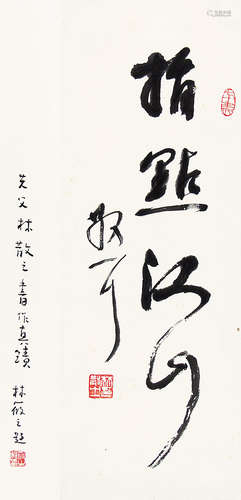 指點江山
散耳
先父林散之書作真蹟
林筱之題